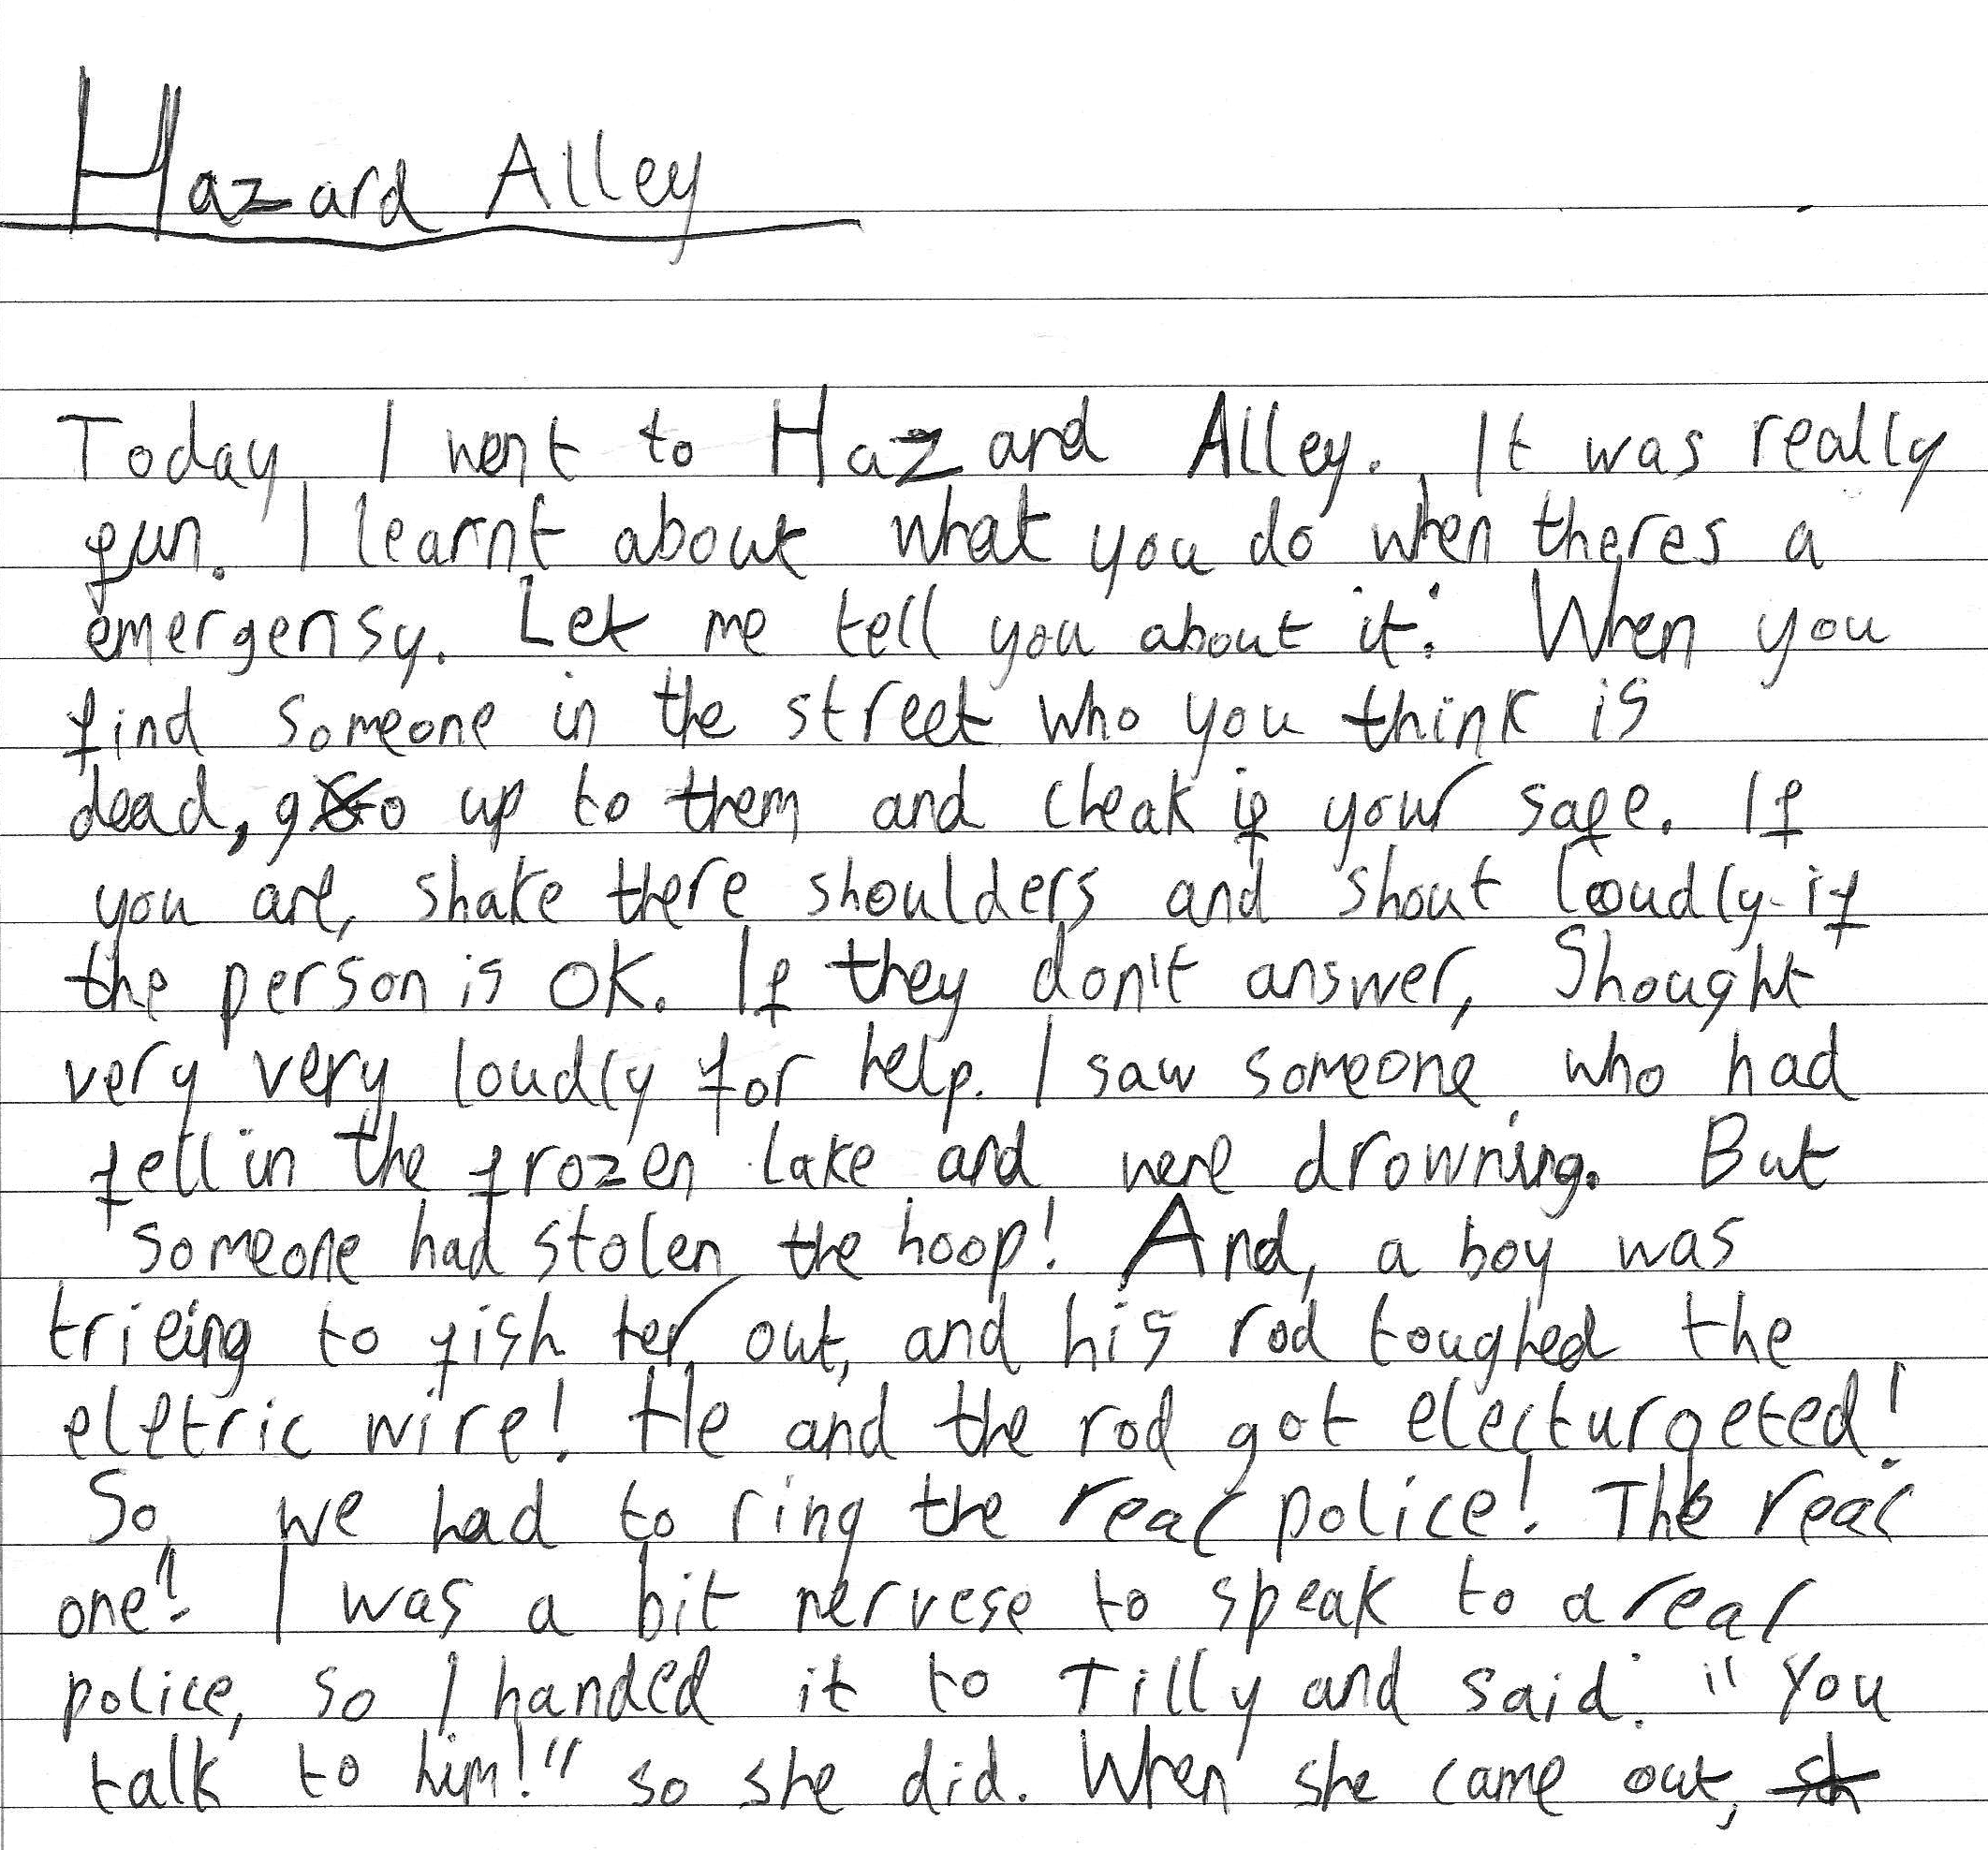 Hazard Alley
Today I went to Hazard Alley. It was really
fun. I learnt about what you do when theres a
emergensy. Let me tell you about it: When you
find someone in the street who you think is
dead, go up to them and cheak if your safe. If
you are, shake there shoulders and shout loudly if
the person is OK. If they don't answer, Shought
very very loudly for help. I saw someone who had
fell in the frozen lake and were drowning. But
someone had stolen the hoop! And, a boy was
trieing to fish her out, and his rod toughed the
eletric wire! He and the rod got electurgeted!
So we had to ring the real police! The real
one! I was a bit nervese to speak to a real
police, so I handed it to Tilly and said: "You
talk to him!" so she did. When she came out,